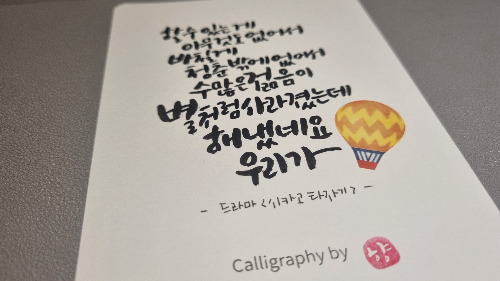 할 수 있는 게
아무것도 없어서
바칠 게
청춘 밖에 없어서
수많은 젊음이
별처럼 사라졌는데
해냈네요
우리가
- 드라마 <시카고 타자기> -
Calligraphy by 향